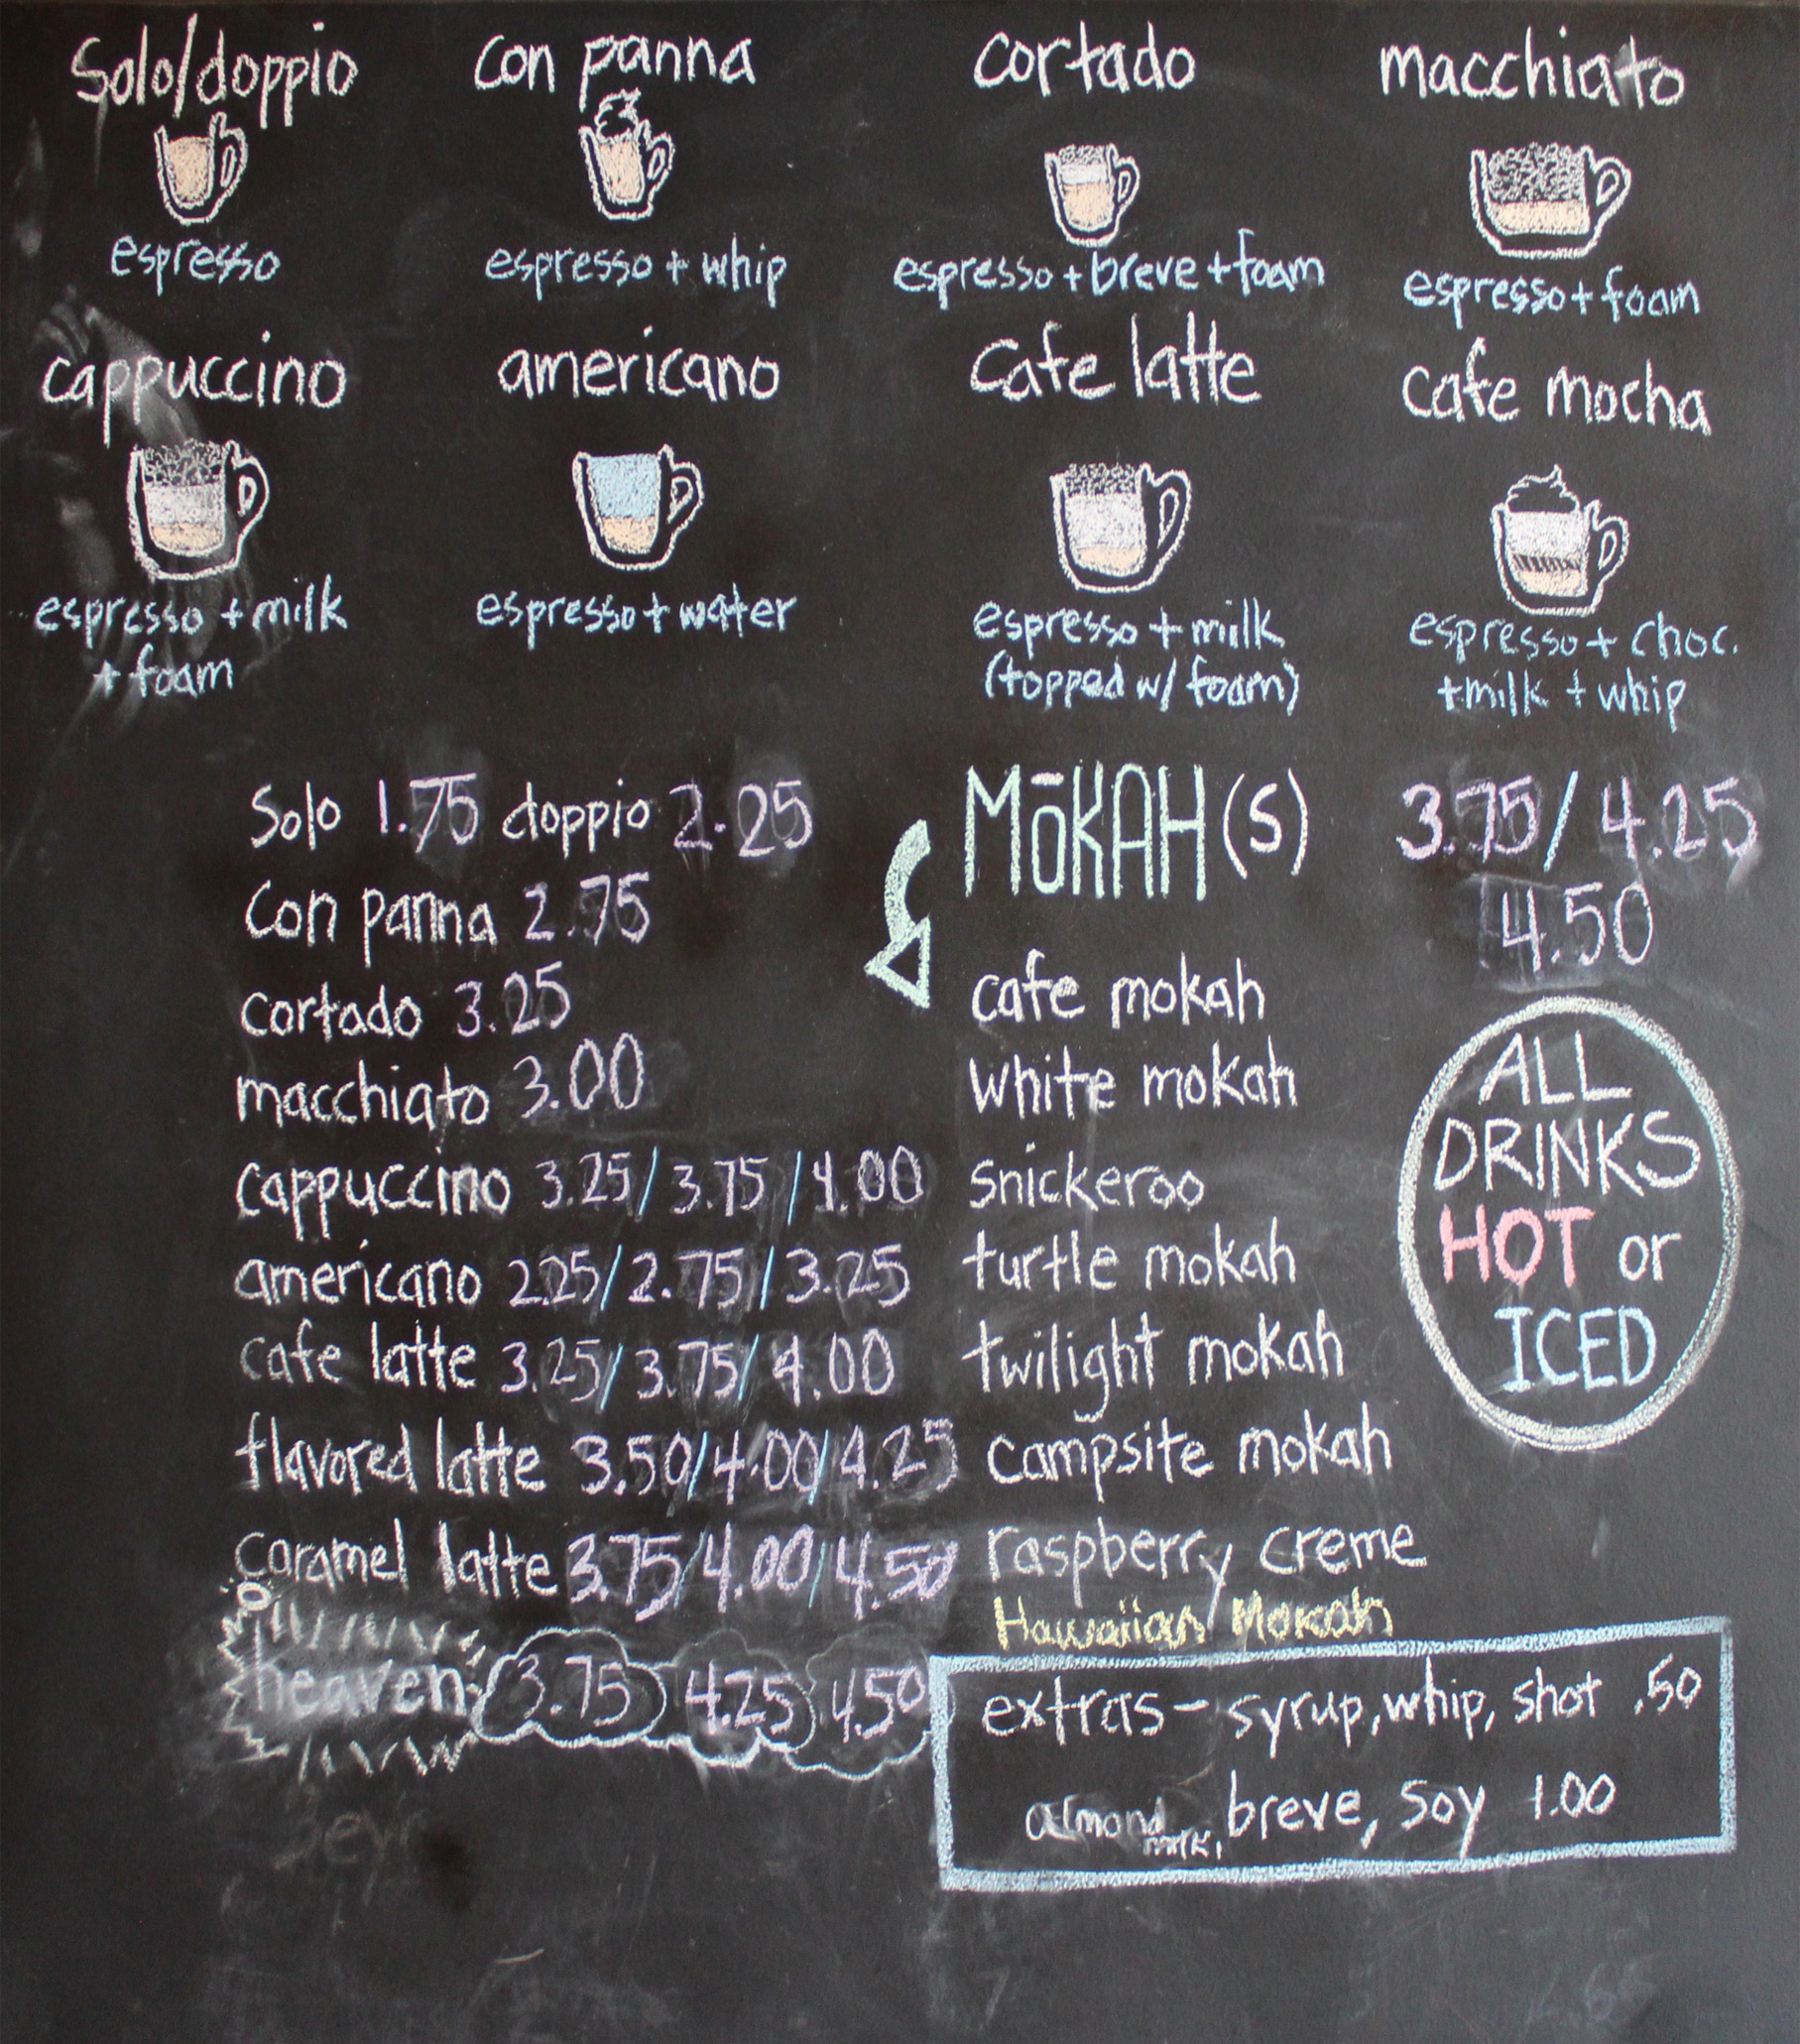 Solo/doppio
espresso
con panna
espresso + whip
cortado
espresso + breve + foam
macchiato
espresso + foam
cappuccino
espresso + milk
+ foam
americano
espresso + water
Cafe latte
espresso + milk
(topped w/ foam)
cafe mocha
espresso + choc.
+ milk + whip
Solo 1.75 doppio 2.25
Con panna 2.75
cortado 3.25
macchiato 3.00
cappuccino 3.25/3.75/4.00
americano 2.25/2.75/3.25
cafe latte 3.25/3.75/4.00
flavored latte 3.50/4.00/4.25
caramel latte 3.75/4.00/4.50
heaven 3.75 4.25 4.50
MōKAH(S) 3.75/4.25
4.50
cafe mokah
white mokah
snickeroo
turtle mokah
twilight mokah
campsite mokah
raspberry creme
Hawaiian Mokah
ALL
DRINKS
HOT or
ICED
extras - syrup, whip, shot .50
almond milk, breve, soy 1.00